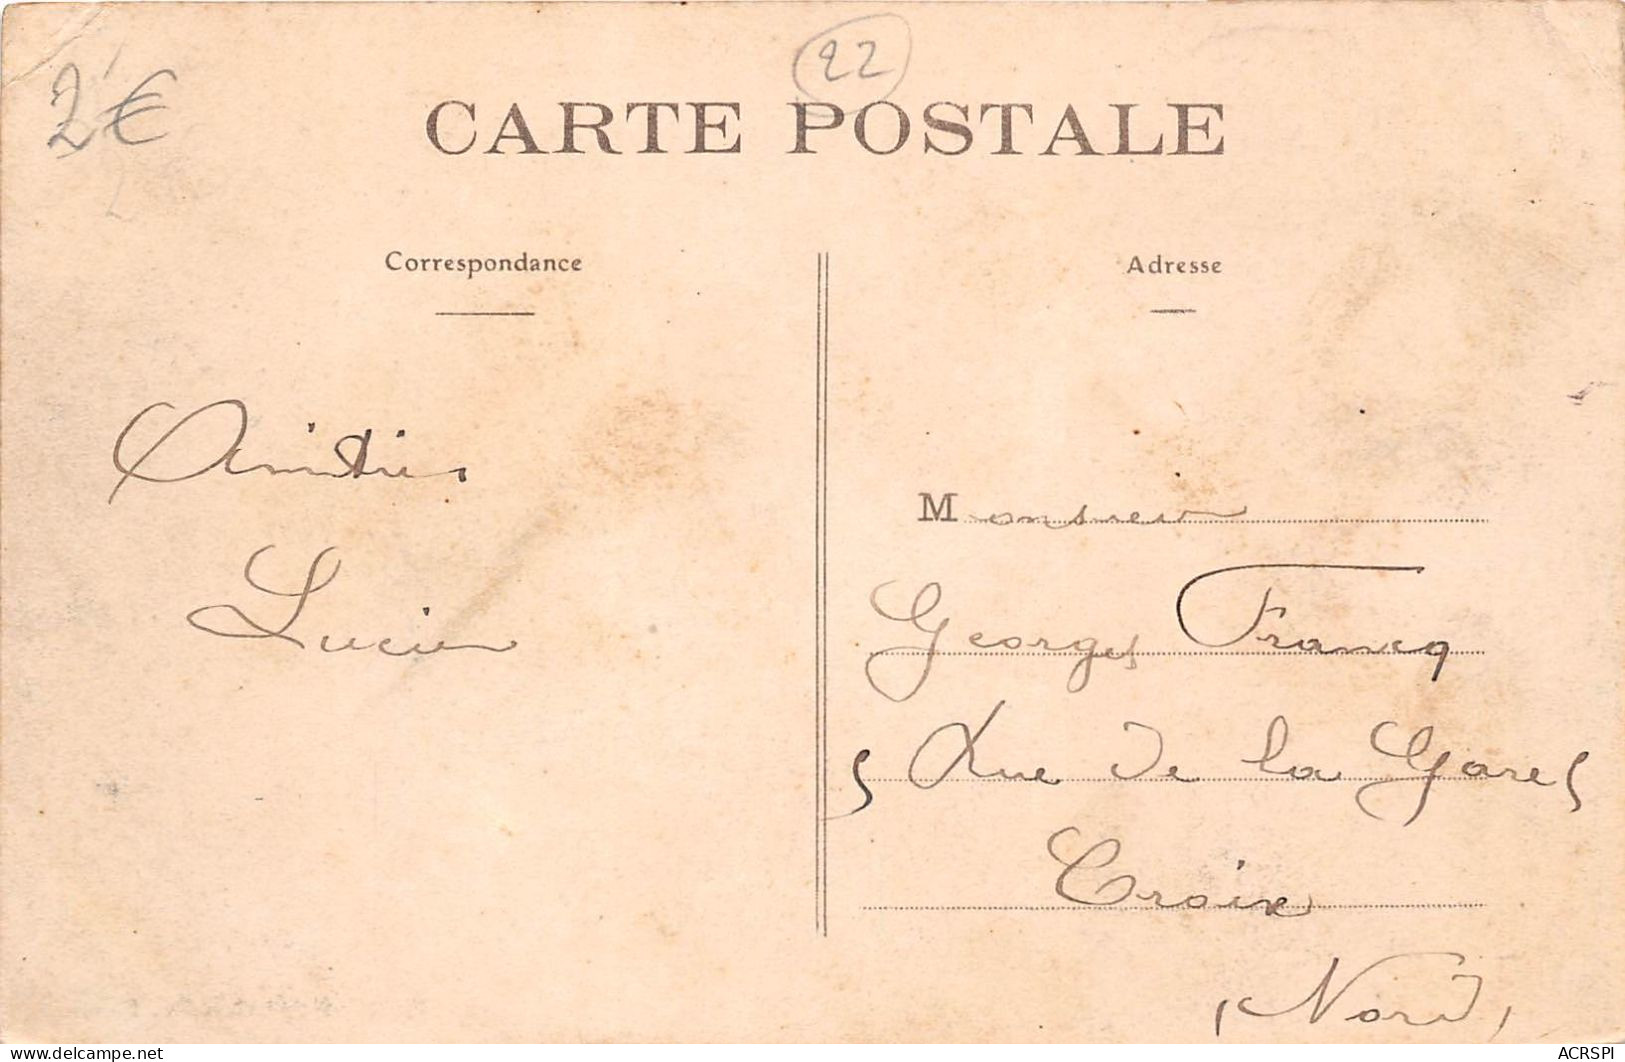 22
2€
CARTE POSTALE
Correspondance
Adresse
Amitiés
Lucien
Monsieur
Georges Francq
5 Rue de la Gare 5
Croix
(Nord)
ACRSPI